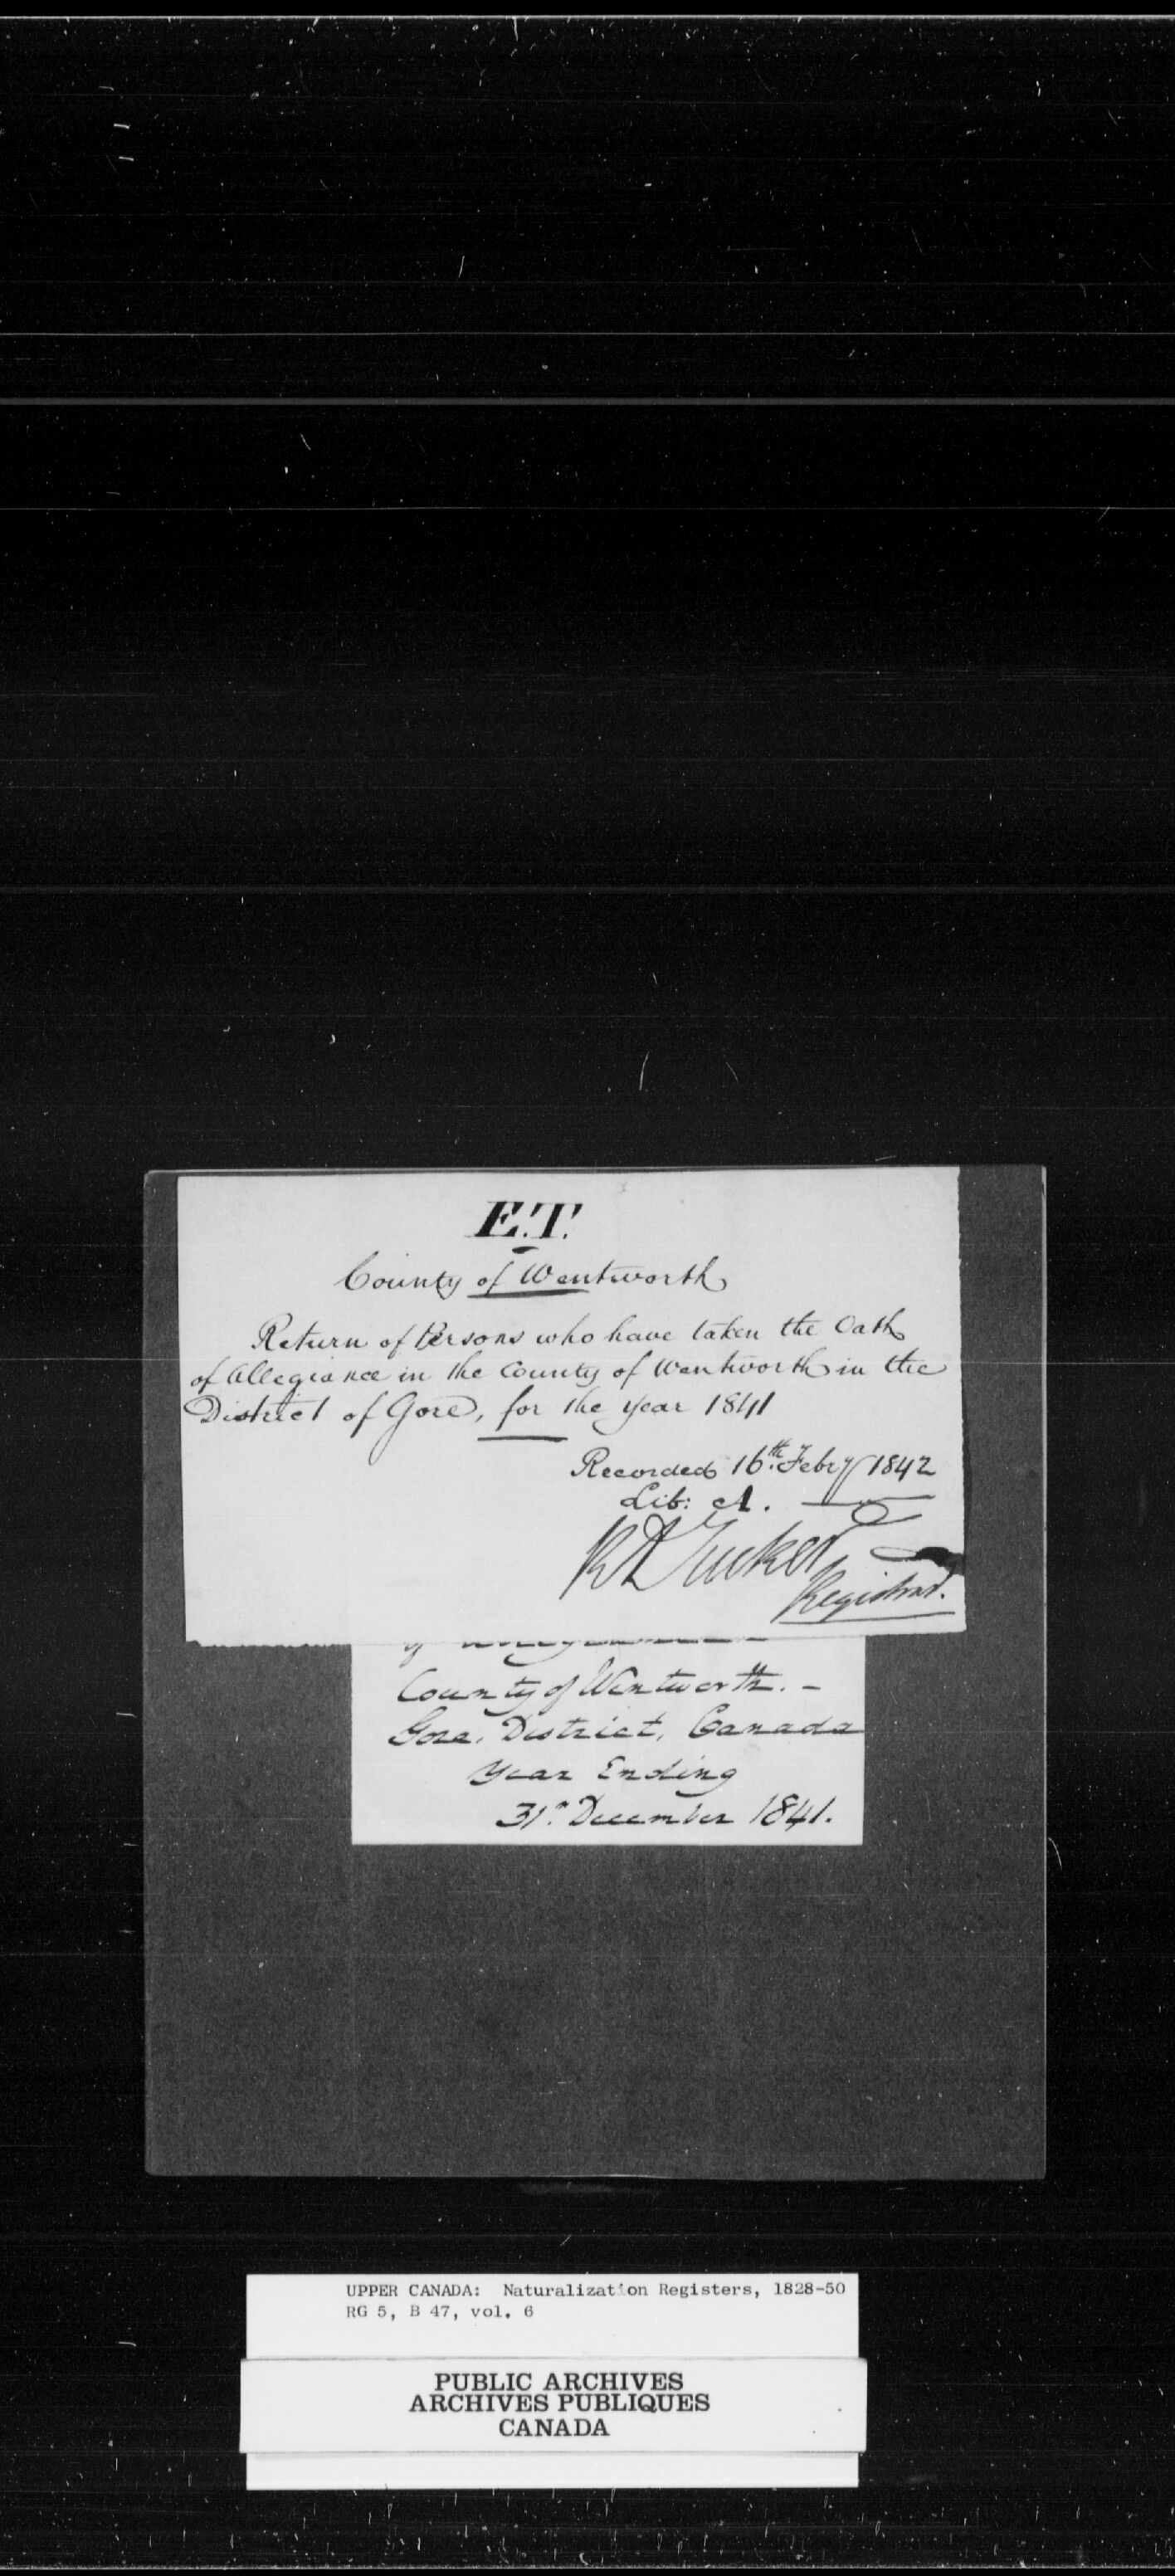 E.T.
County of Wentworth
Return of Persons who have taken the Oath
of Allegiance in the County of Wentworth in the
District of Gore, for the year 1841
Recorded 16th. Febry 1842
Lib: A.
R A Tucker
Registrar.
County of Wentworth. -
Gore, District, Canada
Year Ending
31st. December 1841.
UPPER CANADA: Naturalization Registers, 1828-50
RG 5, B 47, vol. 6
PUBLIC ARCHIVES
ARCHIVES PUBLIQUES
CANADA